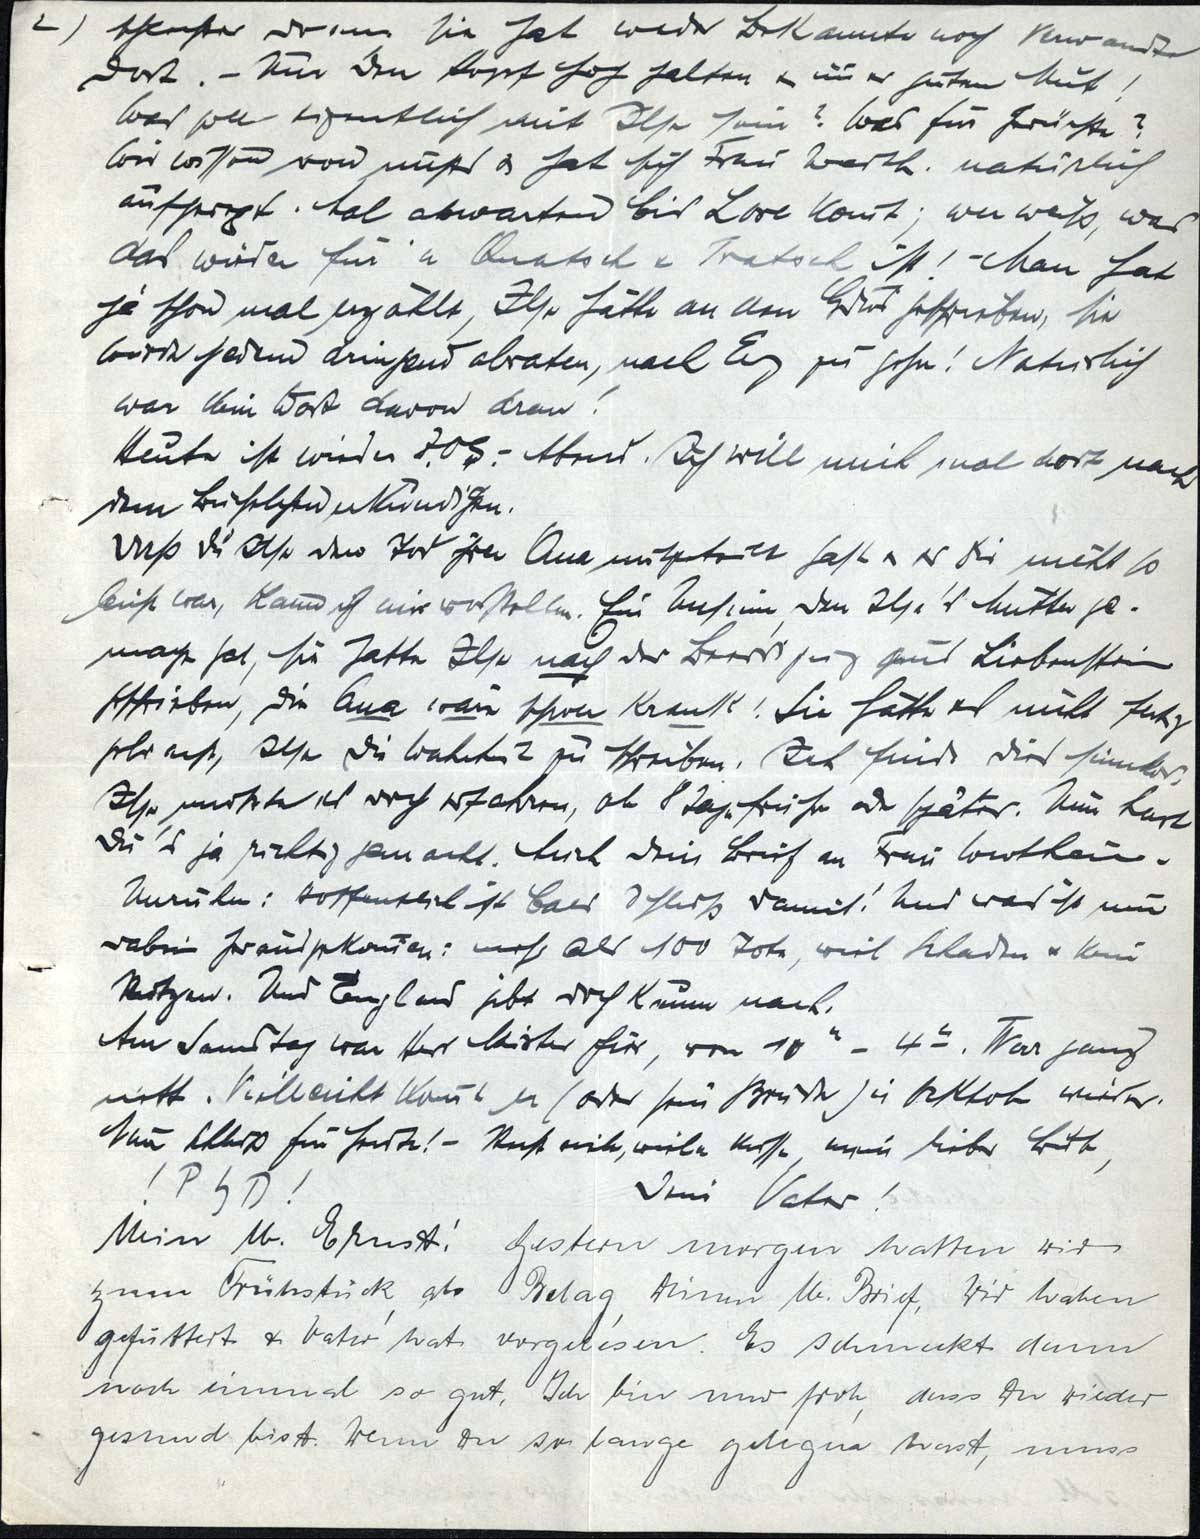 2) schwester denn sie hat weder Bekannte noch Verwandte
dort. – Nur den Kopf hoch halten & immer guten Mut!
Was soll eigentlich mit Ilse sein? Was für Gerüchte?
Wir wissen von nichts & hat sich Frau Werth. natürlich
aufgeregt. Mal abwarten bis Lore komt; wer weiß, was
das wieder für 'n Quatsch & Tratsch ist! – Man hat
ja schon mal erzählt, Ilse hätte an den geschrieben, sie
würde jedem dringend abraten, nach Erez zu gehn! Natürlich
war kein Wort davon dran!
Heute ist wieder Z.O.G.- Abend. Ich will mich mal dort nach
dem erkundigen.
Daß Du Ilse den Tod ihrer Oma mitgeteilt hast & es Dir nicht so
leicht war, kann ich mir vorstellen. Ein Unsinn, den Ilse's Mutter ge-
macht hat, sie hatte Ilse nach der Beerdigung aus Liebenstein
geschrieben, die Oma wäre schwer krank! Sie hätte es nicht fertig
gebracht, Ilse die Wahrheit zu schreiben. Ich finde dies sinnlos,
Ilse mußte es doch erfahren, ob 8 Tage früher oder später. Nun hast
Du's ja richtig gemacht. Auch Dein Brief an Frau Wertheim.
Unruhen: Hoffentlich ist bald Schluß damit! Und was ist nun
dabei herausgekommen: mehr als 100 Tote, viel Schaden & kein
Nutzen. Und England gibt doch kaum nach.
Am Samstag war Herr hier, von 10 h – 4 h. War ganz
nett. Vielleicht komt er (oder sein Bruder) in Oktob. wieder.
Nun Schluß für heute! – Recht viele, viele Küsse, mein lieber Bub,
Dein Vater!
Mein lb. Ernst! Gestern morgen hatten wir
zum Frühstück als Belag Deinen lb. Brief. Wir haben
gefuttert & Vater hat vorgelesen. Es schmeckt dann
noch einmal so gut. Ich bin nur froh, dass Du wieder
gesund bist. Wenn Du so lange gelegen hast, muss